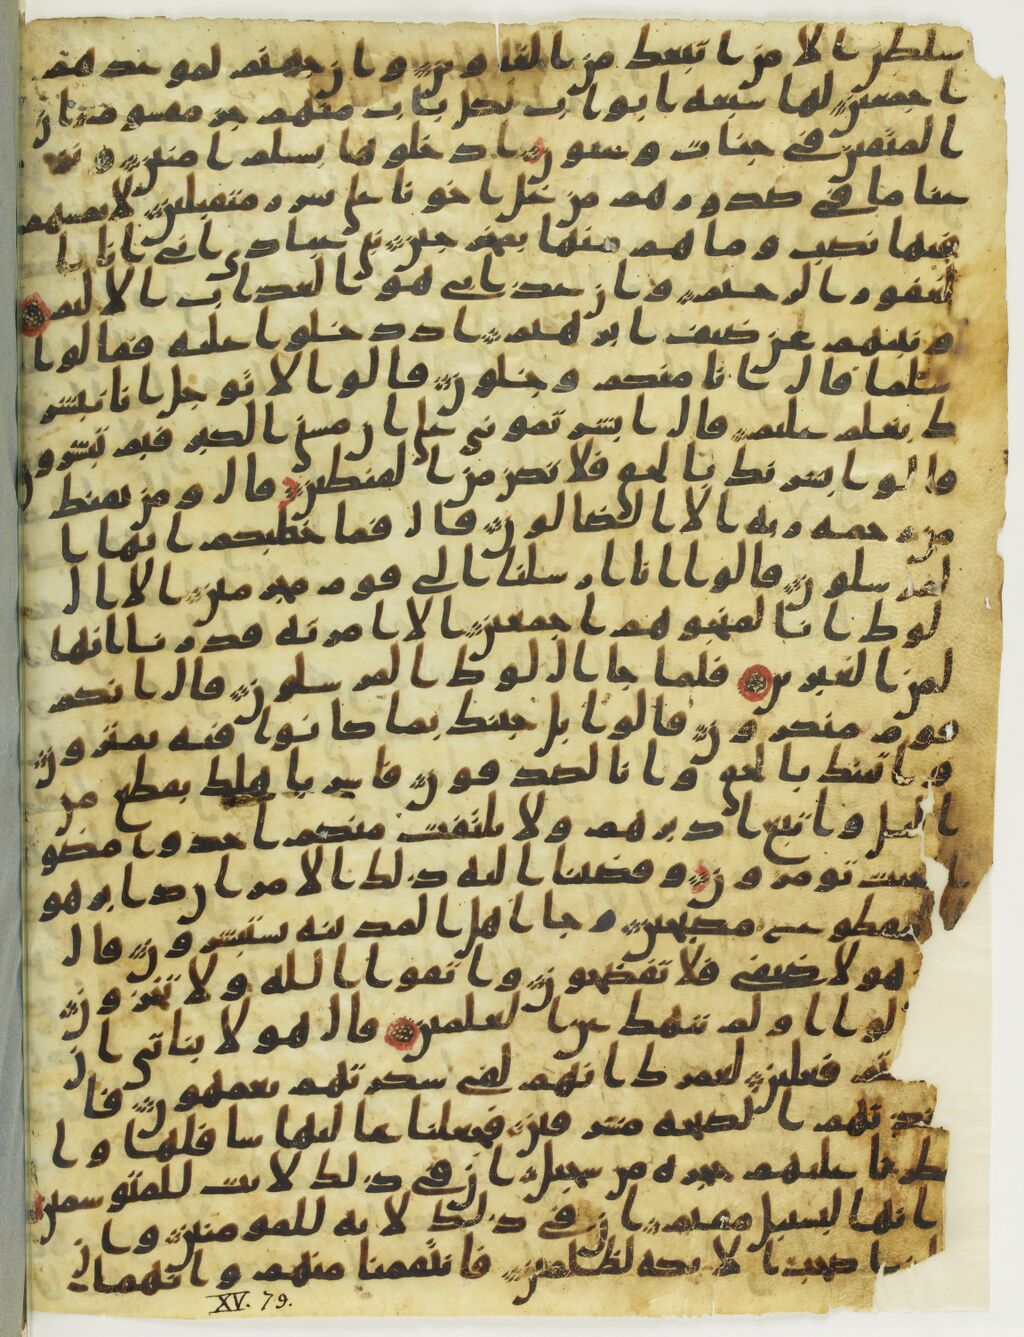 سلطن الا من اتبعك من الغاوين وان جهنم لموعدهم
اجمعين لها سبعه ابواب لكل باب منهم جز مقسوم ان
المتقين في جنات وعيون ادخلوها بسلم امنين ونز
عنا ما في صدورهم من غل اخونا على سرر متقبلين لا يمسهم
فيها نصب وما هم منها بمخرجين نبى عبادي اني انا ا
لغفور الرحيم وان عذابي هو العذاب الاليم
ونبيهم عن ضيف ابرهيم اذ دخلوا عليه فقالوا
سلما قال انا منكم وجلون قالوا لا توجل انا نبشر
ك بغلم عليم قال ابشرتموني على ان مسني الكبر فبم تبشرون
قالوا بشرنك بالحق فلا تكن من القنطين قال ومن يقنط
من رحمه ربه الا الضالون قال فما خطبكم ايها ا
لمرسلون قالوا انا ارسلنا الى قوم مجرمين الا ال
لوط انا لمنجوهم اجمعين الا امرته قدرنا انها
لمن الغبرين فلما جا ال لوط المرسلون قال انكم
قوم منكرون قالوا بل جينك بما كانوا فيه يمترون
واتينك بالحق وانا لصدقون فاسر باهلك بقطع من
اليل واتبع ادبرهم ولا يلتفت منكم احد وامضو
حيث تومرون وقضينا اليه ذلك الامر ان دابر هو
مقطوع مصبحين وجا اهل المدينه يستبشرون قال
هولا ضيفي فلا تفضحون واتقوا الله ولا تخزون
لوا اولم ننهك عن العلمين قال هولا بناتي ان
تم فعلين لعمرك انهم لفي سكرتهم يعمهون فا
خذتهم الصيحه مشرقين فجعلنا عاليها سافلها وا
مطرنا عليهم حجره من سجيل ان في ذلك لايت للمتوسمين
انها لبسبيل مقيم ان في ذلك لايه للمومنين وان
اصحب الايكه لظلمين فانتقمنا منهم وانهما
XV. 79.